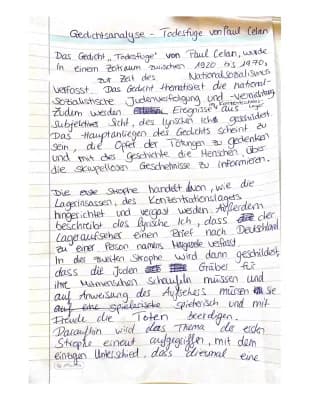 Gedichtsanalyse - Todesfuge von Paul Celan
Das Gedicht „Todesfuge" von Paul Celan, wurde
in einem Zeitraum zwischen 1920 bis 1970,
zur Zeit des Nationalsozialismus
verfasst. Das Gedicht thematisiert die national-
sozialistische Judenverfolgung und -vernichtung
Zudem werden Ereignisse aus
subjektiver Sicht, des lyrischen Ichs geschildert
Das Hauptanliegen des Gedichts scheint zu
sein, die Opfer der Tötungen zu gedenken
und mit des Geschichte die Menschen über
die skrupellosen Geschehnisse zu informieren.
Die erste Strophe handelt davon, wie die
Lagerinsassen, des Konzentrationslagers
hingerichtet und vergast werden. Außerdem
beschreibt das lyrische Ich, dass der
Lageraufseher einen Brief nach Deutschland
zu einer Person namens Margarete verfasst.
In der zweiten Strophe wird dann geschildert,
dass die Juden Gräber für
ihre Mitmenschen schaufeln müssen und
auf Anweisung des Aufsehers müssen sie
spielerisch und mit
Freude die Toten beerdigen.
Daraufhin wird das Thema der ersten
Strophe erneut aufgegriffen, mit dem
einzigen Unterschied, dass diesmal eine